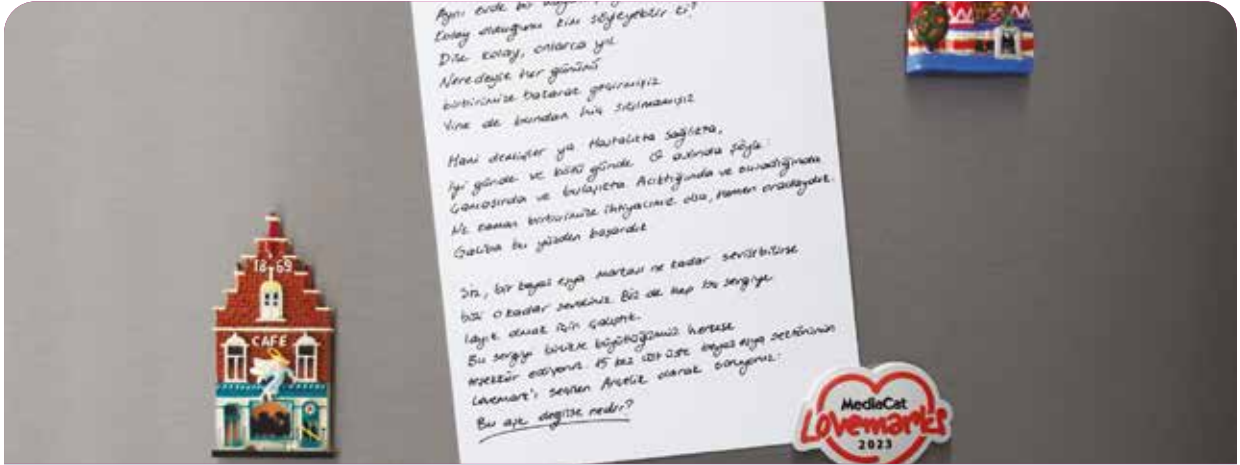 Aynı evde bir
Kolay olduğunu kim söyleyebilir ki?
Dile kolay, onlarca yıl
Neredeyse her gününü
birbirimize bakarak geçirmişiz
Yine de bundan hiç sıkılmamışız
Hani demişler ya Hastalıkta sağlıkta,
iyi günde ve kötü günde O aslında şöyle:
Çamaşırda ve bulaşıkta. Acıktığında ve susadığında
Ne zaman birbirimize ihtiyacımız olsa, hemen oradaydık.
Galiba bu yüzden başardık
Siz, bir beyaz eşya markası ne kadar sevilebilirse
bizi o kadar sevdiniz. Biz de hep bu sevgiye
layık olmak için çalıştık.
Bu sevgiyi birlikte büyüttüğümüz herkese
teşekkür ediyoruz. 15 kez üst üste beyaz eşya sektörünün
Lovemark'ı seçilen Arçelik olarak soruyoruz:
Bu aşk değilse nedir?
1869
CAFE
MediaCat
Lovemarks
2023